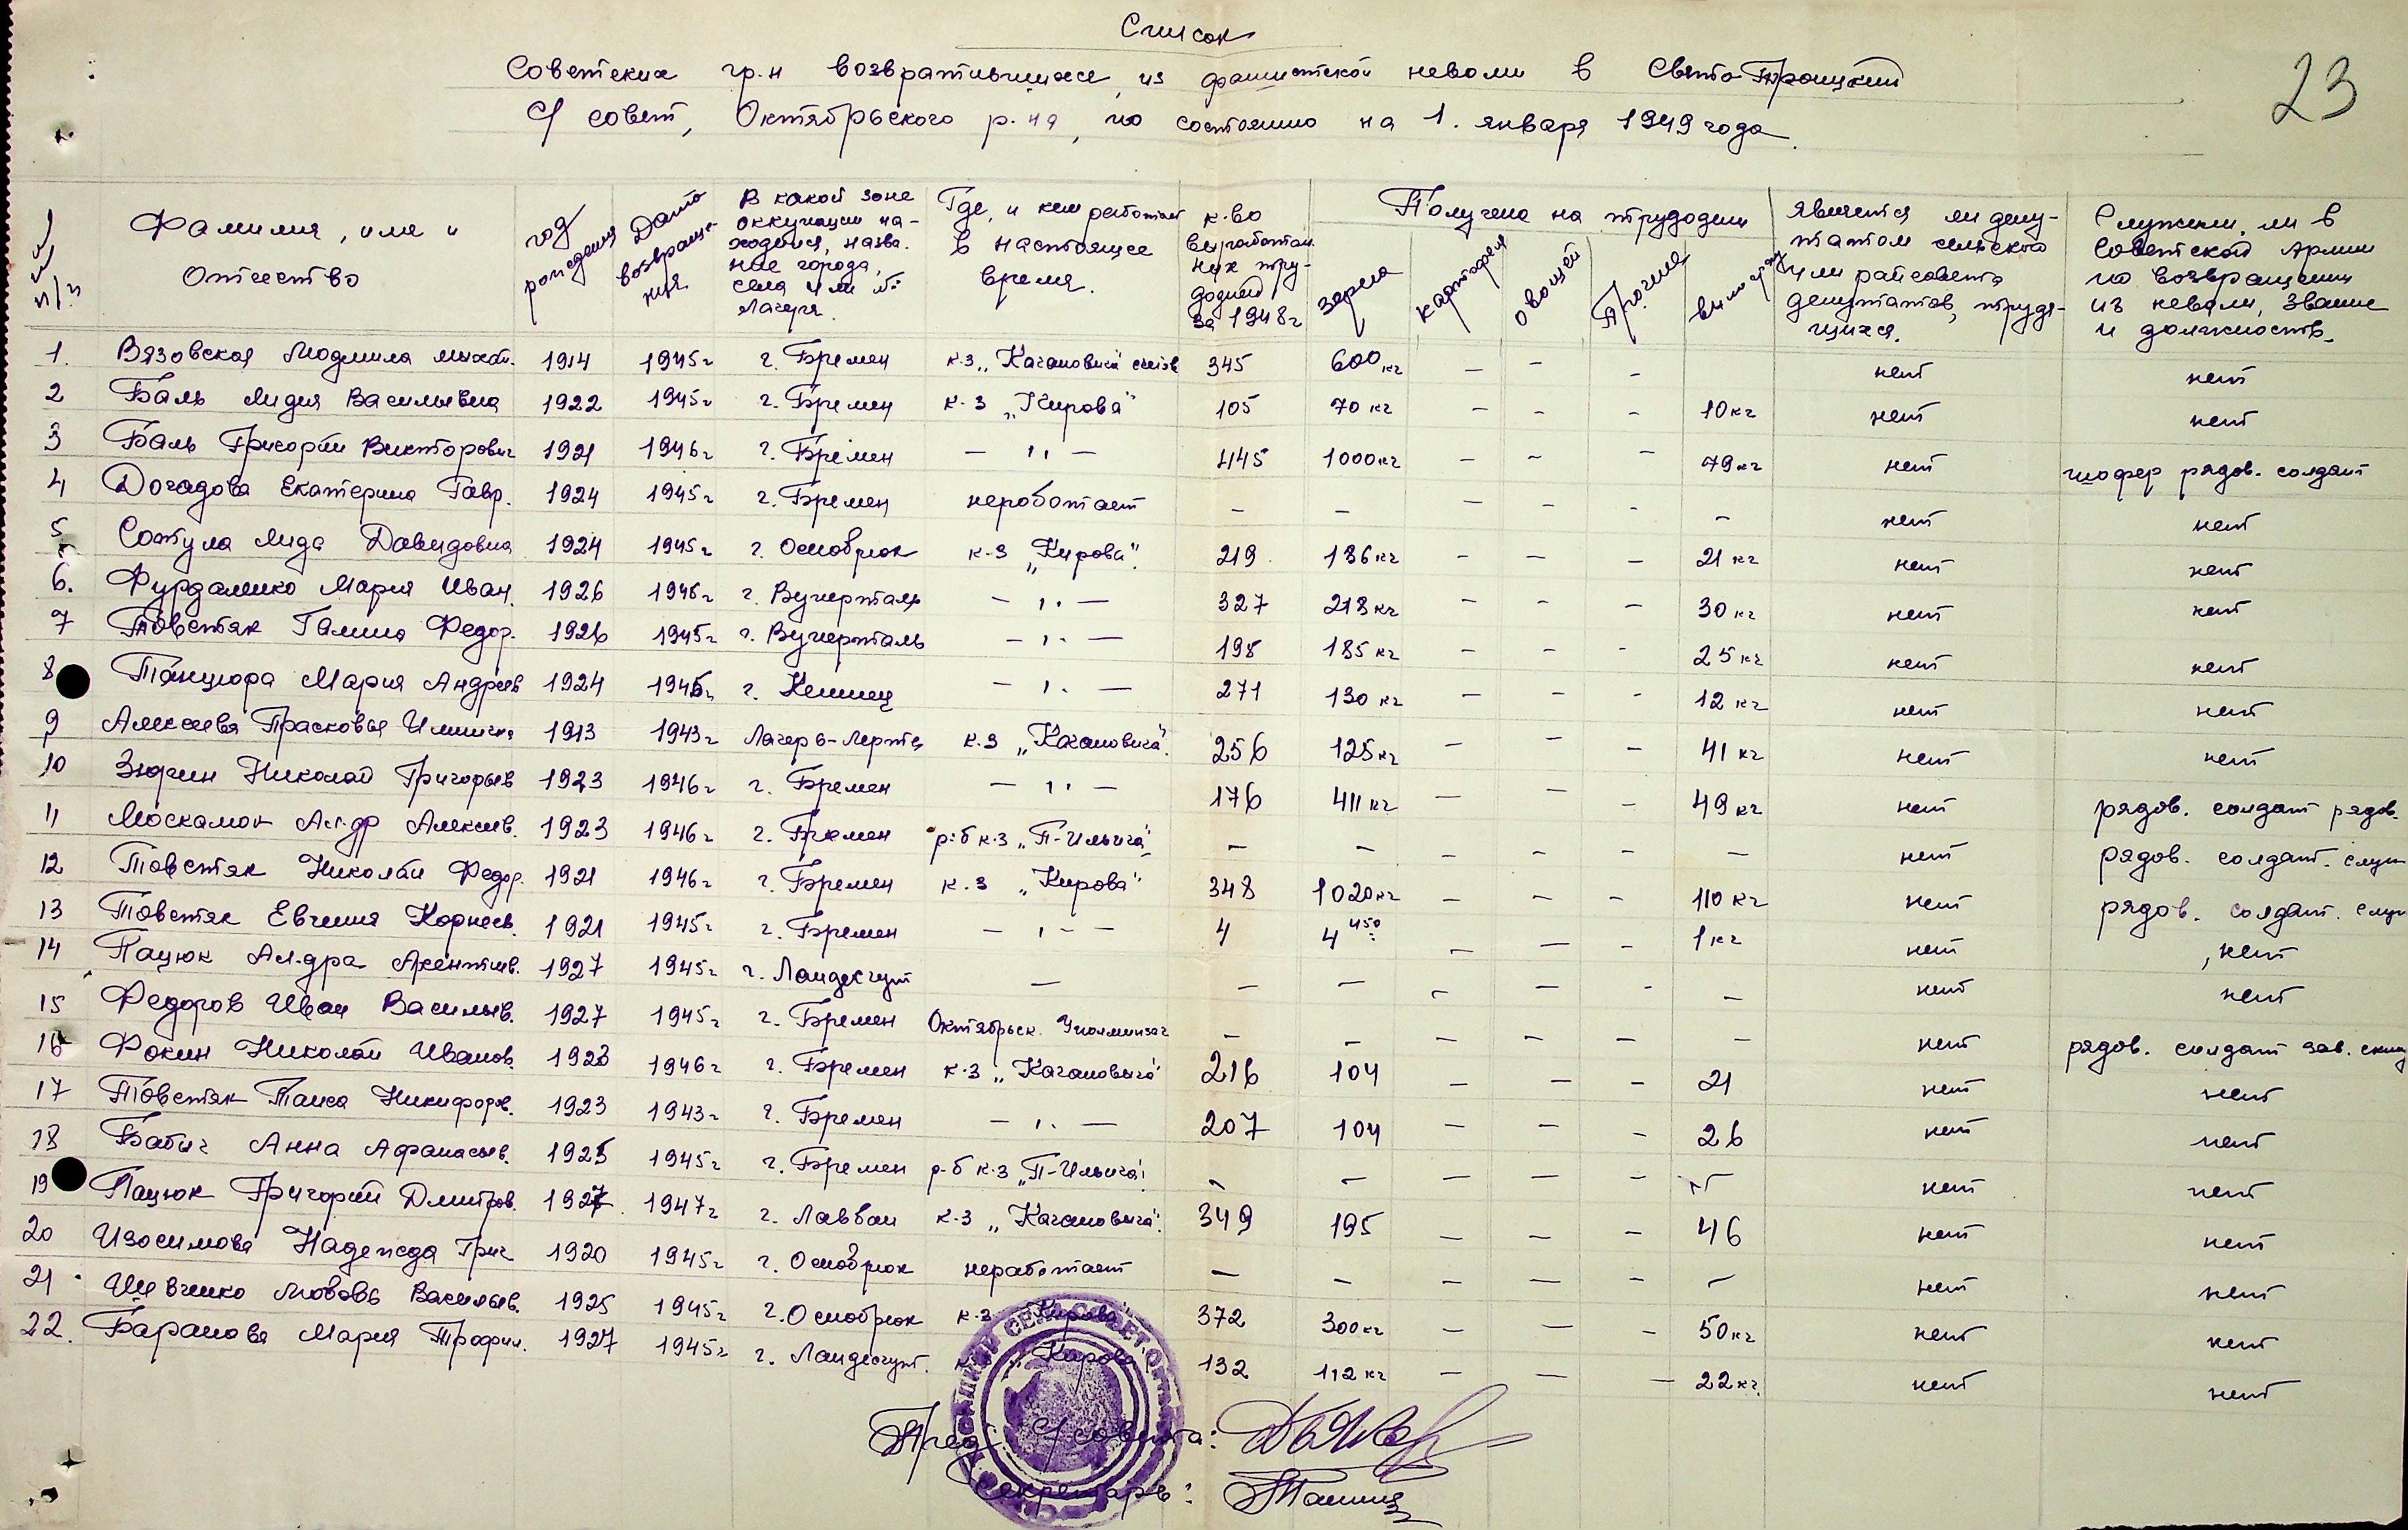 Список
23
Советских гр.н возвратившихся из фашистской неволи в Свято Троицкий
С/совет, Октябрьского р.на, по состоянию на 1. января 1949 года.
п/п Фамилия, имя и отчество год рождения Дата возвращения В какой зоне оккупации находился, название города, села или № лагеря. Где, и кем работает в настоящее время. к-во выработанных трудодней за 1948г Получено на трудодни зерна картофеля овощей Прочих Является ли депутатом сельского или райсовета депутатов, трудящихся. Служили ли в Советской Армии по возвращении из неволи, звание и должность.
1. Вязовская Людмила Михай. 1914 1945г г. Бремен к-з „Кагановича" 345 600 кг - - - нет нет
2 Баль Лидия Васильевна 1922 1945г г. Бремен к-з „Кирова" 105 70 кг - - - 10кг нет нет
3 Баль Григорий Викторович 1921 1946г г. Бремен — ,, — 445 1000кг - - - 79кг нет шофер рядов. солдат
4 Догадова Екатерина Гавр. 1924 1945г г. Бремен неработает - - - - - - нет нет
5 Сотула Лида Давидовна 1924 1945г г. Оснобрюк к-з „Кирова". 219 186кг - - - 21 кг нет нет
6. Фурдашко Мария Иван. 1926 1945г г. Вуперталь — ,, — 327 218кг - - - 30 кг нет нет
7 Товстяк Галина Федор. 1926 1945г г. Вуперталь — ,, — 198 185 кг - - - 25 кг нет нет
8 Танцюра Мария Андреев 1924 1945г г. — ,, — 271 130 кг - - - 12 кг нет нет
9 Алексеева Прасковья 1913 1943г Лагерь- к-з „Кагановича". 256 125кг - - - 41 кг нет нет
10 Зюзин Николай Григорьев 1923 1946г г. Бремен — ,, — 176 411кг - - - 49кг нет рядов. солдат рядов.
11 Москалюк Ал-др Алексеев. 1923 1946г г. Бремен р-б к-з „П-Ильича" - - - - - - нет рядов. солдат. служ
12 Товстяк Николай Федор. 1921 1946г г. Бремен к-з „Кирова" 348 1020кг - - - 110 кг нет рядов. солдат. служ
13 Товстяк Евгения Корнеев. 1921 1945г г. Бремен — ,, — 4 4 450 - - - 1 кг нет нет
14 Пацюк Ал-дра Аксентьев. 1927 1945г г. Ландесгут — - - - - - - нет нет
15 Федоров Иван Васильев. 1927 1945г г. Бремен Октябрьск. Уполминзаг - - - - - - нет рядов. солдат зав. склад
16 Фокин Николай Иванов. 1923 1946г г. Бремен к-з „Кагановича" 216 104 - - - 21 нет нет
17 Товстяк Таиса Никифоров. 1923 1943г г. Бремен — ,, — 207 104 - - - 26 нет нет
18 Бабич Анна Афанасьев. 1925 1945г г. Бремен р-б к-з „П-Ильича" - - - - - - нет нет
19 Пацюк Григорий Дмитров. 1927 1947г г. Лаббан к-з „Кагановича". 349 195 - - - 46 нет нет
20 Изосимова Надежда Григ 1920 1945г г. Оснобрюк неработает - - - - - - нет нет
21 Шевченко Любовь Васильев. 1925 1945г г. Оснобрюк к-з „Кирова" 372 300кг - - - 50кг нет нет
22. Баранова Мария Трофим. 1927 1945г г. Ландесгут. к-з „Кирова 132 112 кг - - - 22кг. нет нет
Пред. С/совета:
Секретарь: